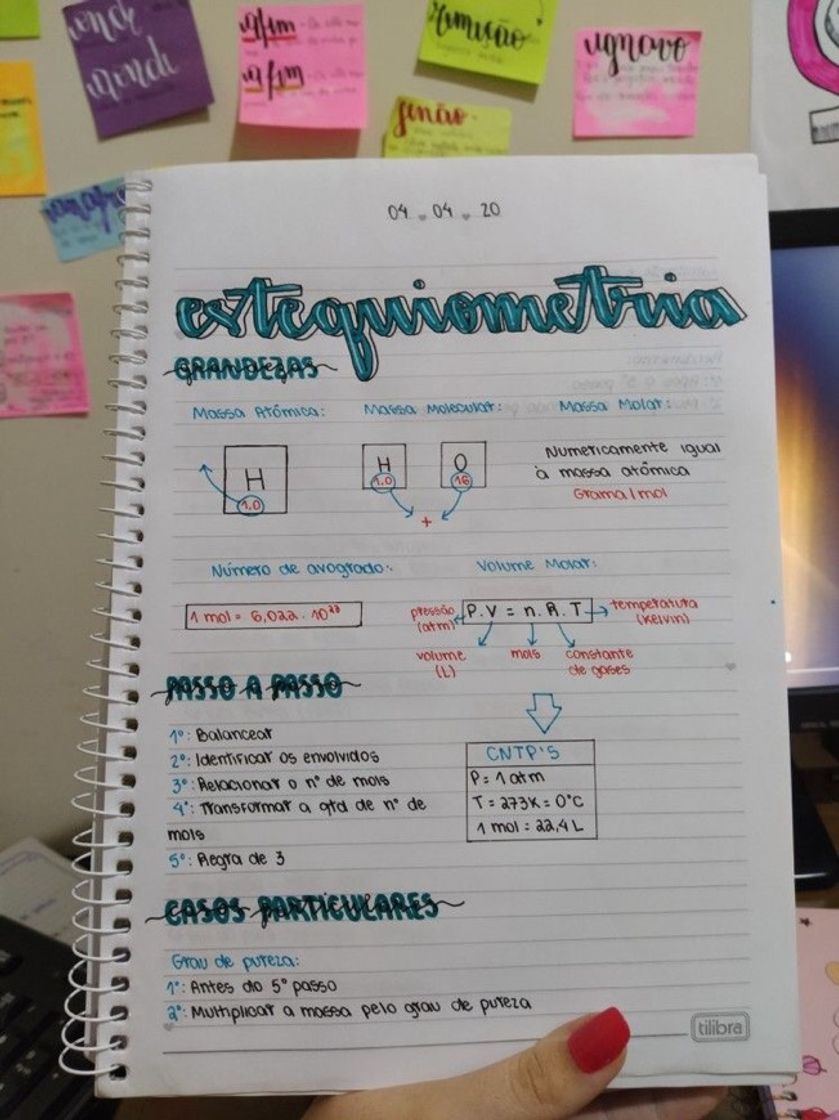 afim
afim
remição
senão
04.04.20
estequiometria
GRANDEZAS
Massa Atômica: Massa Molecular: Massa Molar:
H H O
1.0 1.0 16
+
Numericamente igual
à massa atômica
Grama/mol
Número de avogrado: Volume Molar:
1 mol = 6,022 . 10²³
P.V = n.R.T
pressão
(atm)
temperatura
(Kelvin)
volume
(L)
mols
constante
de gases
PASSO A PASSO
1º: Balancear
2º: Identificar os envolvidos
3º: Relacionar o nº de mols
4º: Transformar a qtd de nº de
mols
5º: Regra de 3
CNTP'S
P = 1 atm
T = 273K = 0°C
1 mol = 22,4 L
CASOS PARTICULARES
Grau de pureza:
1º: Antes do 5º passo
2º: Multiplicar a massa pelo grau de pureza
tilibra